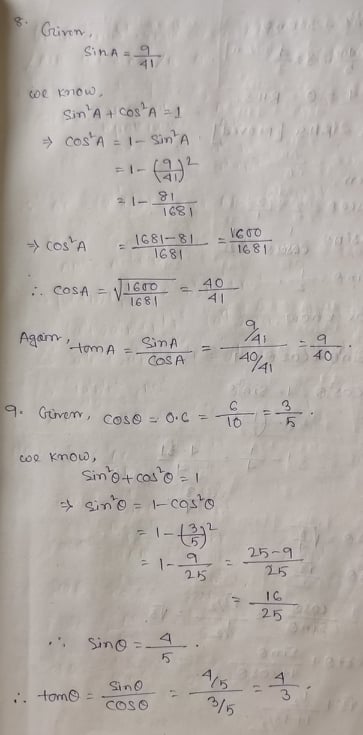 8. Given,
sin A = 9/41
we know,
sin²A + cos²A = 1
⇒ cos²A = 1 - sin²A
= 1 - (9/41)²
= 1 - 81/1681
⇒ cos²A = 1681-81/1681 = 1600/1681
∴ cosA = √1600/1681 = 40/41
Again, tanA = sinA/cosA = 9/41/40/41 = 9/40.
9. Given, cosθ = 0.6 = 6/10 = 3/5.
we know,
sin²θ + cos²θ = 1
⇒ sin²θ = 1 - cos²θ
= 1 - (3/5)²
= 1 - 9/25 = 25-9/25
= 16/25
∴ sinθ = 4/5.
∴ tanθ = sinθ/cosθ = 4/5/3/5 = 4/3.